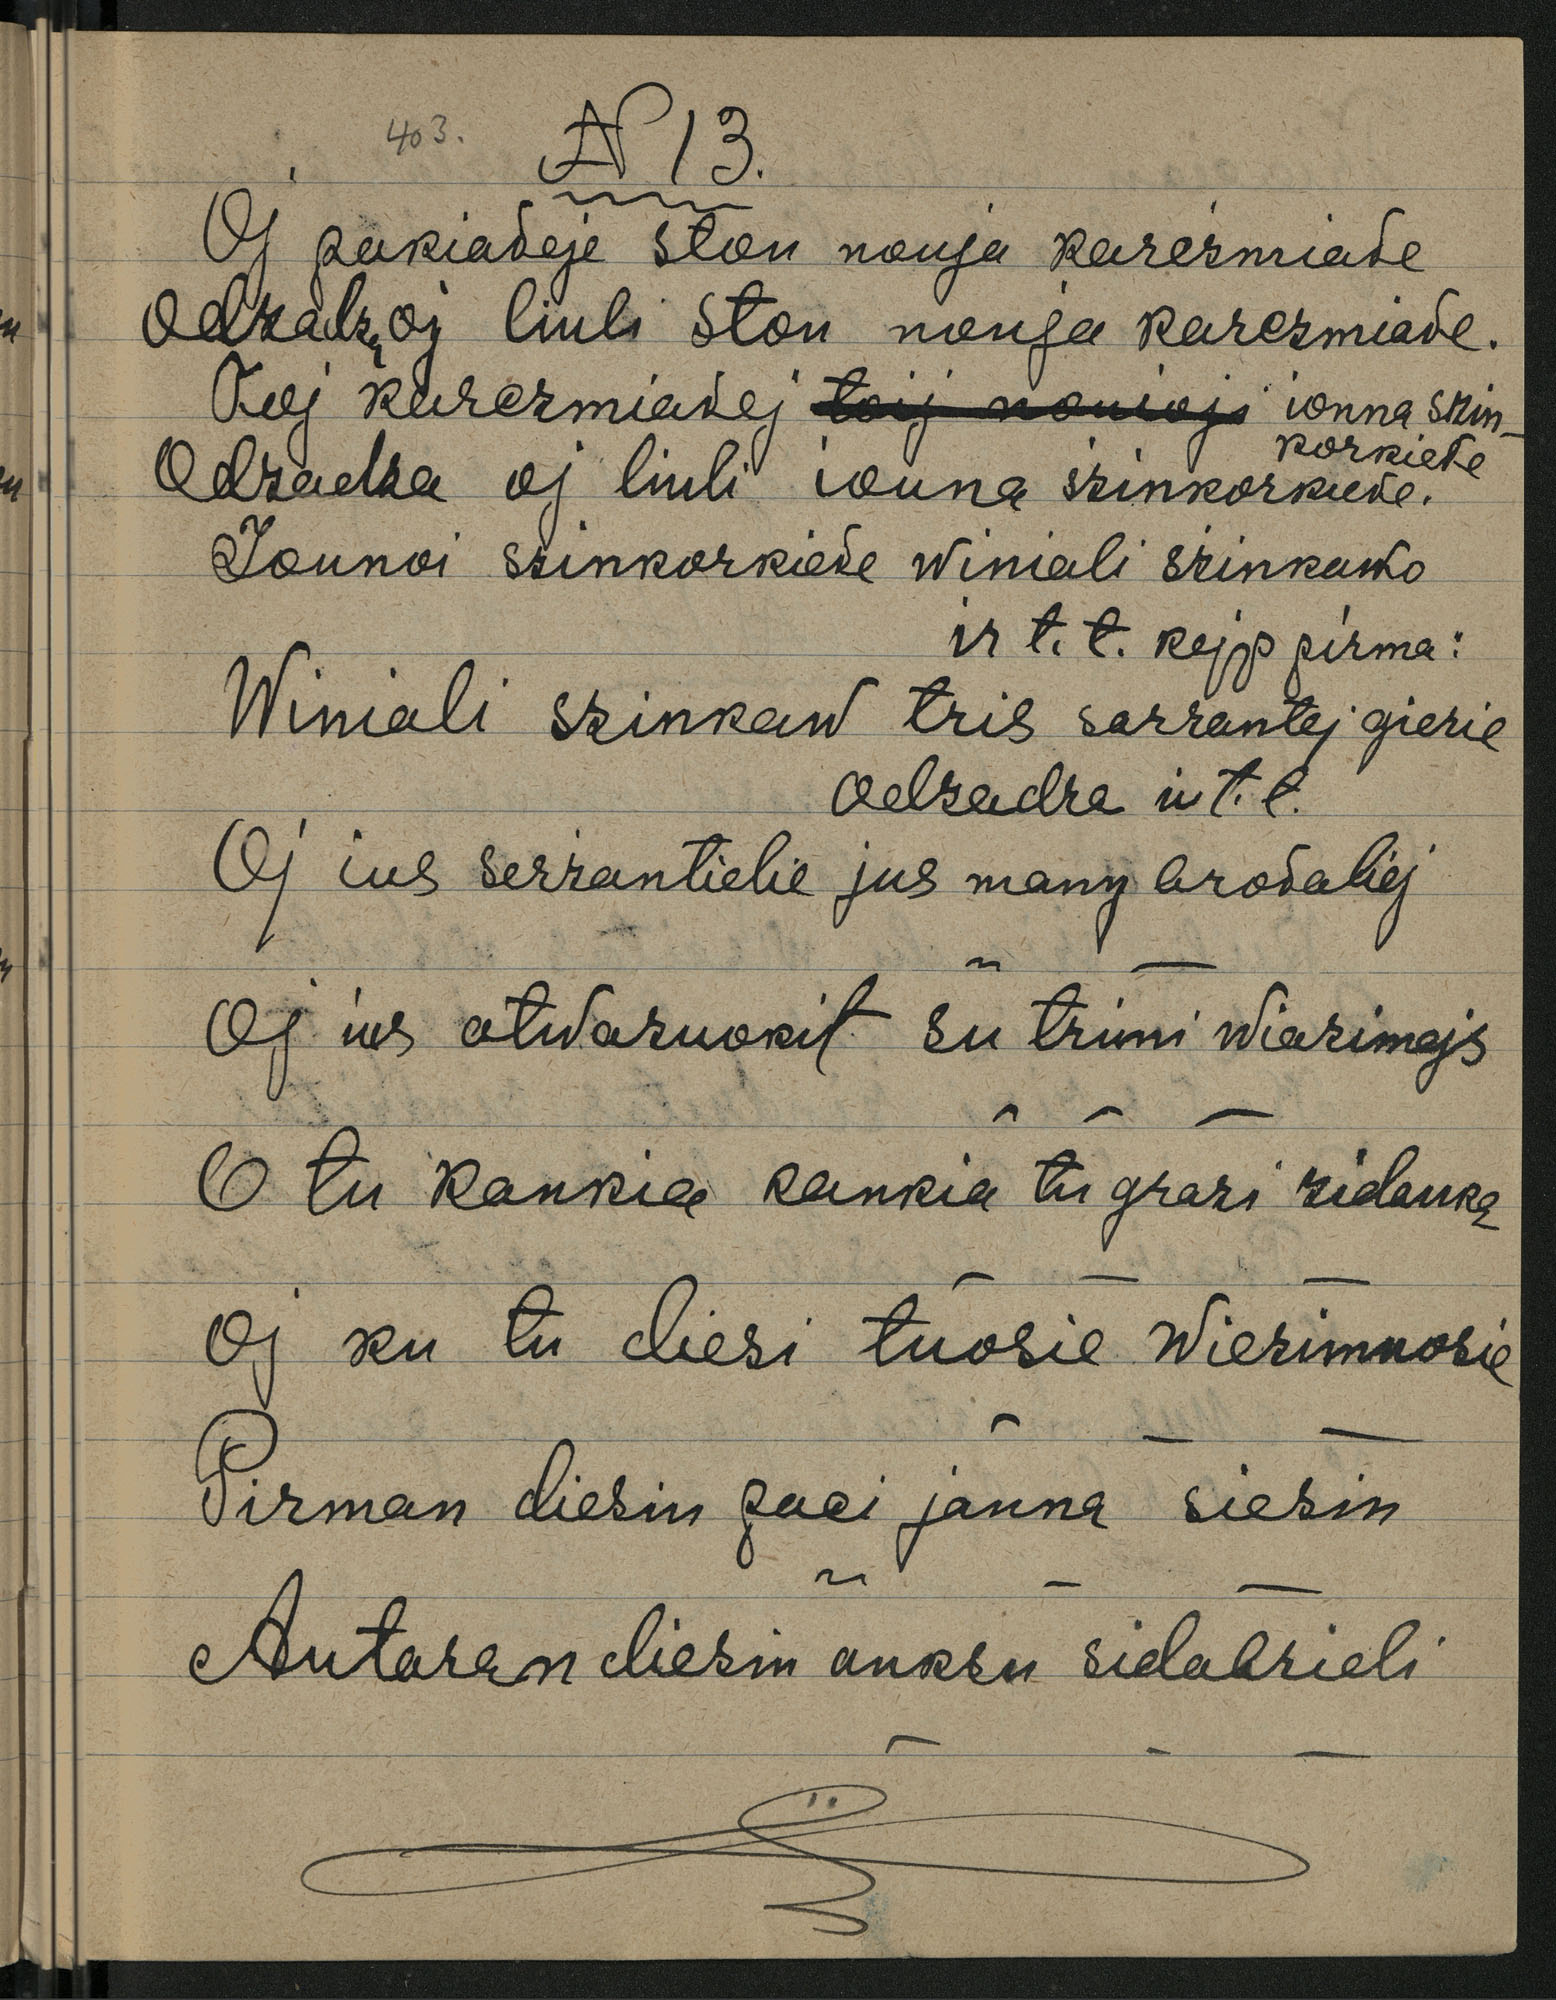 403. N 13.
Oj pakiadeje ston nouja karczmiade
Odzadzą oj liuli ston nouja karczmiade.
Toj karczmiadej toij nouioji ionna szin-
korkiede
Odzadza oj liuli iouna szinkorkiede.
Jounoi szinkorkiede winiali szinkawo
ir t. t. kejp pirma:
Winiali szinkaw tris sarzantej gierie
Odzadza ir t. t.
Oj ius serzantielie jus many brodaliej
Oj ius atwazuokit su trimi wiazimajs
O tu kankia kankia tu grazi zidauką
Oj ku tu diesi tuosie wiezimuosie
Pirman diesiu paci jauną siesin
Autaran diesiu auksu sidabrieli